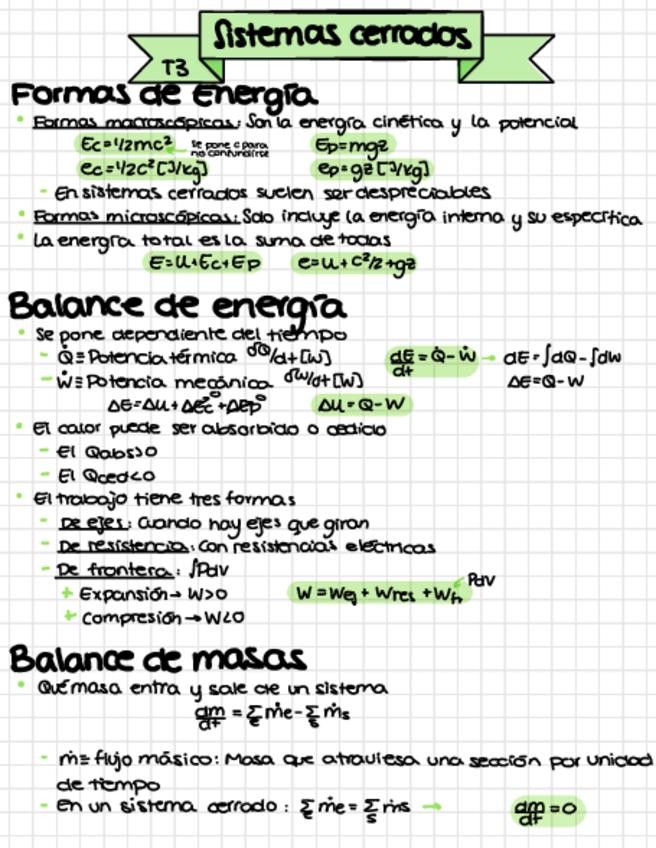 Sistemas cerrados
T3
Formas de Energía
• Formas macroscópicas: Son la energía cinética y la potencial
Ec=1/2mc² ← se pone c para no confundirse Ep=mgz
ec=1/2c² [J/kg] ep=gz [J/kg]
- En sistemas cerrados suelen ser despreciables
• Formas microscópicas: Solo incluye la energía interna y su específica
• La energía total es la suma de todas
E=U+Ec+Ep e=u+c²/2+gz
Balance de energía
• Se pone dependiente del tiempo
- Q̇≡Potencia térmica δQ/dt [W] dE/dt = Q̇-Ẇ → dE=∫dQ-∫dW
- Ẇ≡Potencia mecánica δW/dt [W] ΔE=Q-W
ΔE=ΔU+ΔEc⁰+ΔEp⁰ ΔU=Q-W
• El calor puede ser absorbido o cedido
- El Qabs>0
- El Qced<0
• El trabajo tiene tres formas
- De ejes: Cuando hay ejes que giran
- De resistencia: Con resistencias eléctricas
- De frontera: ∫Pdv
+ Expansión→ W>0 W=Wej + Wres + Wfr ← Pdv
+ Compresión→W<0
Balance de masas
• Qué masa entra y sale de un sistema
dm/dt = Σe ṁe - Σs ṁs
- ṁ≡ flujo másico: Masa que atraviesa una sección por unidad
de tiempo
- En un sistema cerrado: Σe ṁe = Σs ṁs → dm/dt =0